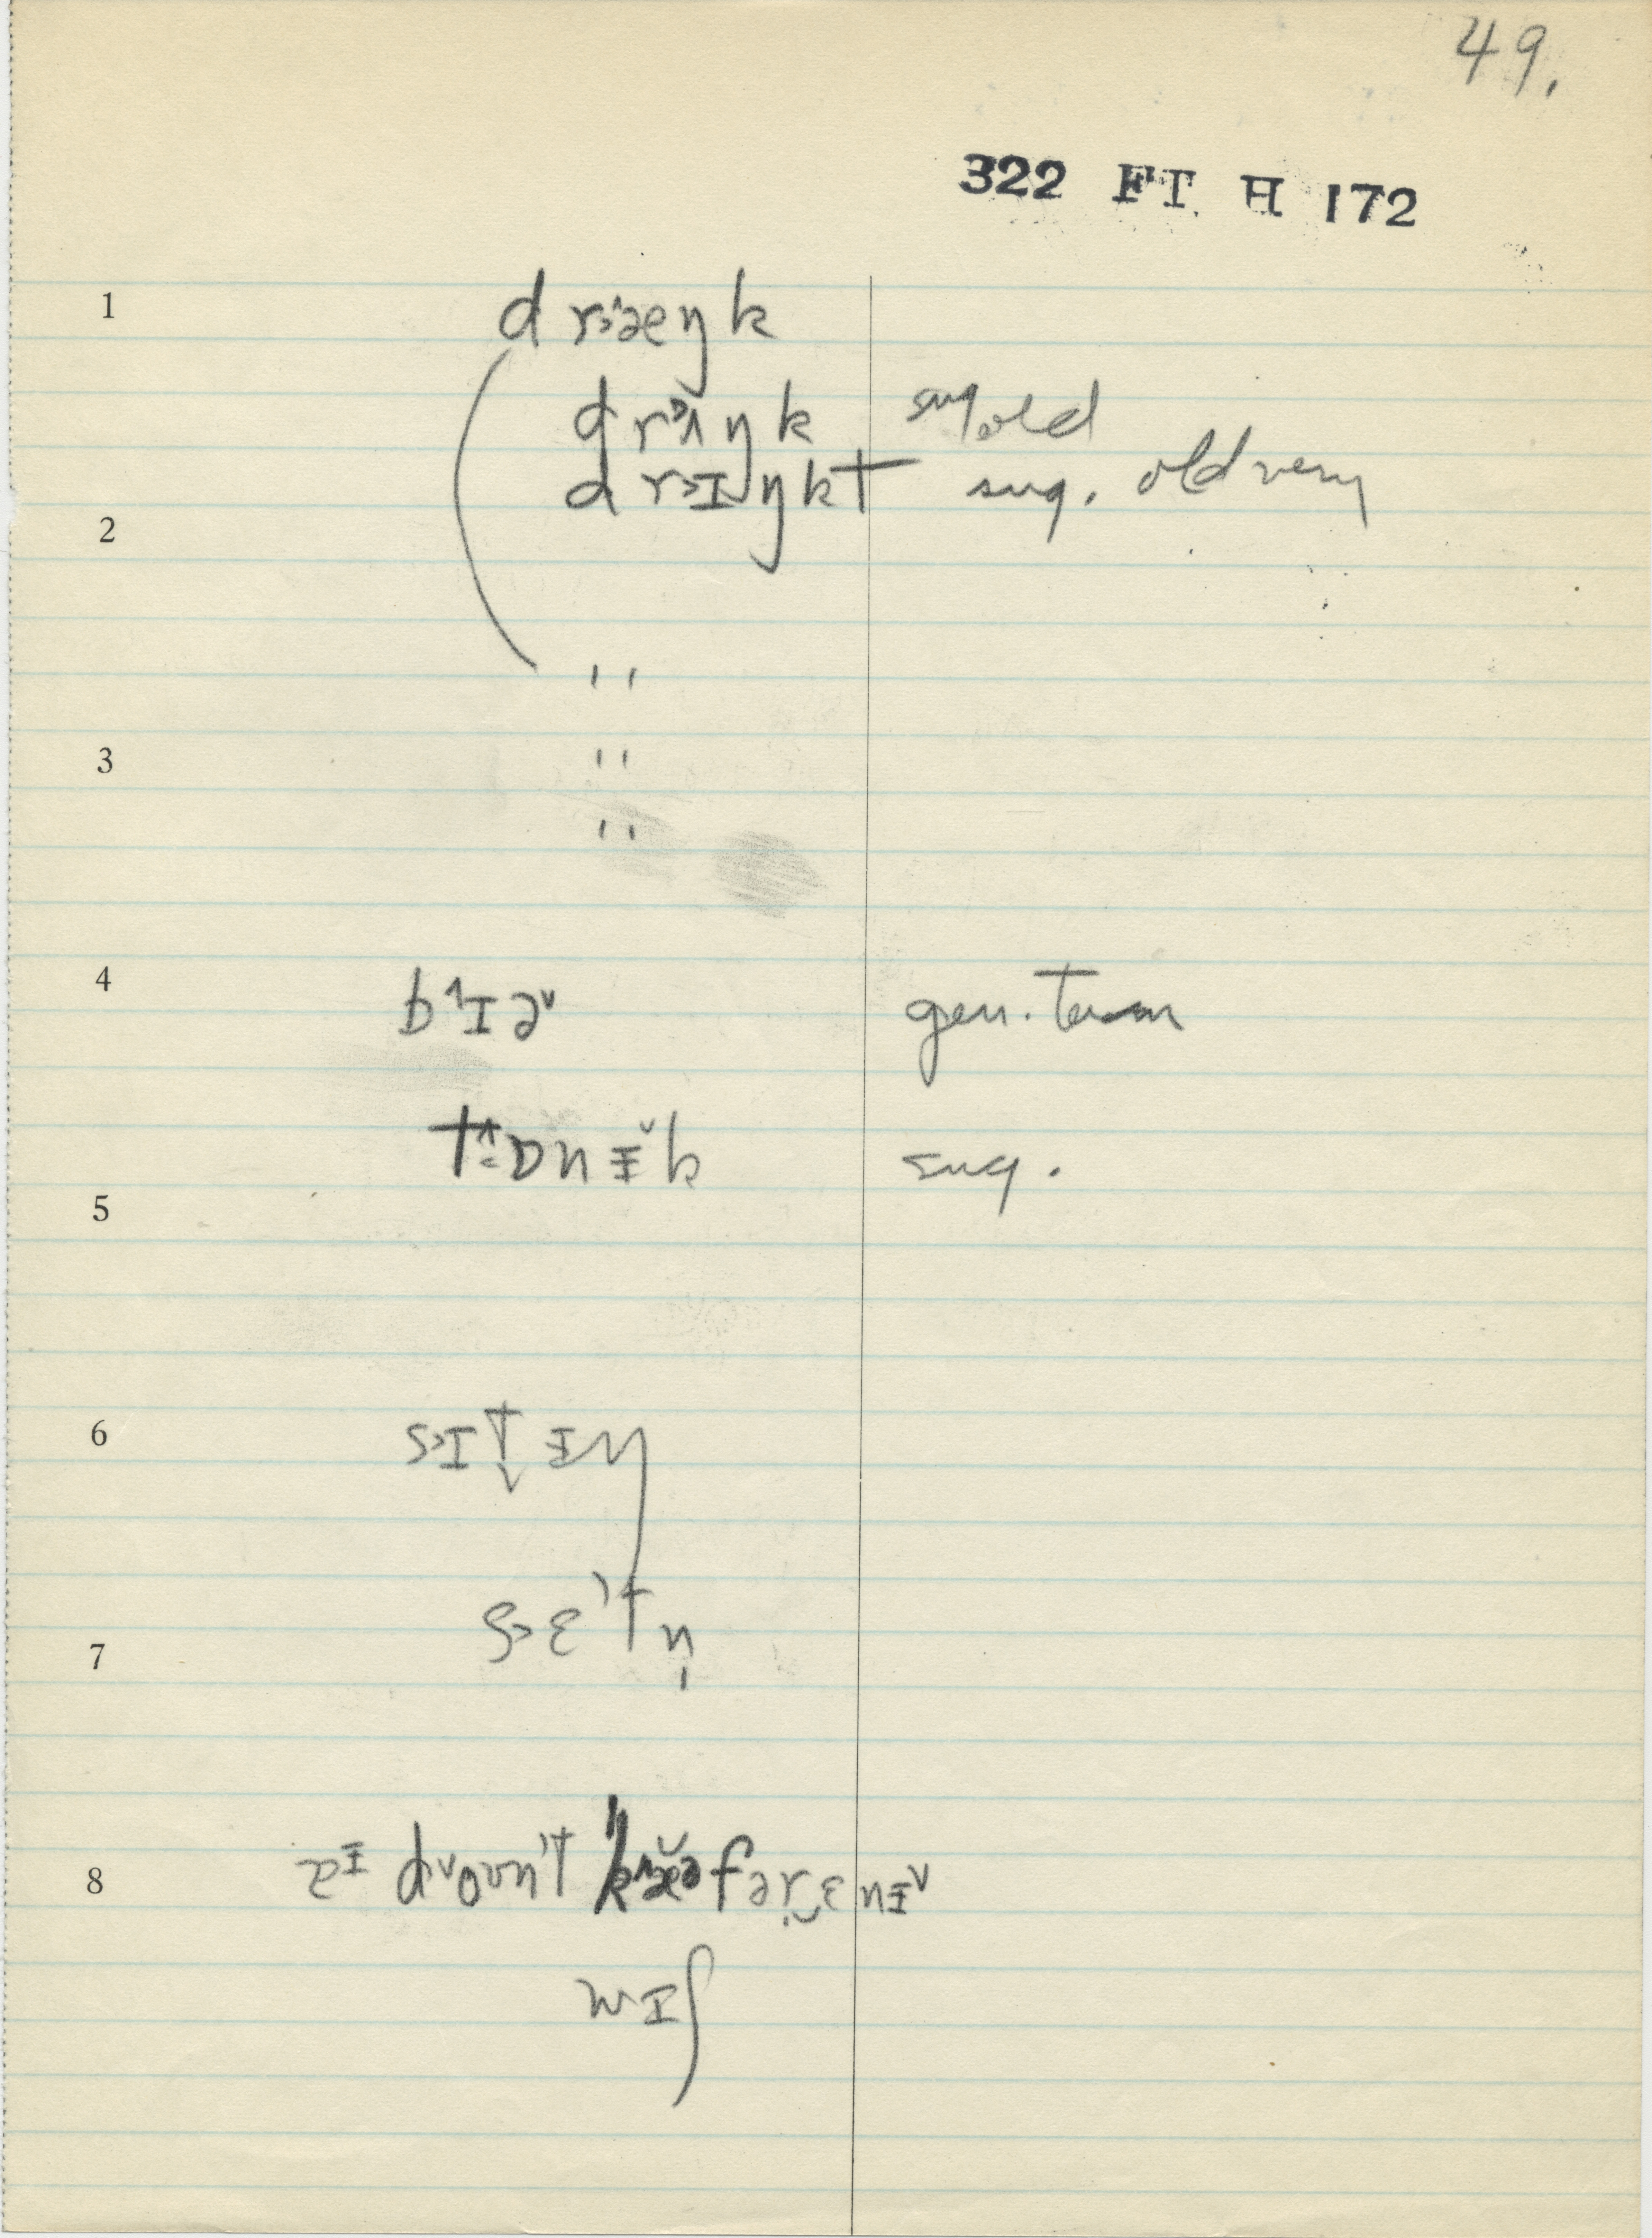 49.
322 FT H 172
1 d r>^æŋk
drʌŋk sug old
d r>ɪŋkt sug. old very
2
''
3 ''
''
4 b^ɪə˅ gen. term
t^ɒnɨ̆k sug.
5
6 s>ɪt̬ɨŋ
s>ɛ't n̩
7
8 dvoʊn't færɛnɨ˅
wɪʃ